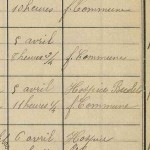 10 heures f. Commune
5 avril
8 heures 3/4 f. Commune
5 avril Hospice
11 heures 1/4 f. Commune
6 avril Hospice